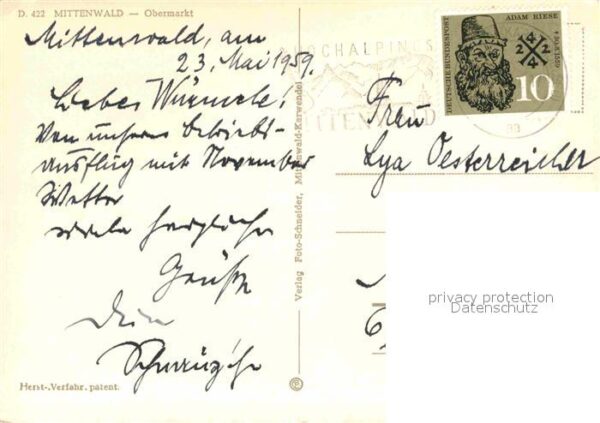 D. 422 MITTENWALD — Obermarkt
Mittenwald, am
23. Mai 1959.
Liebes Würmele!
Von unserem Betriebs-
ausflug mit November
Wetter
viele herzliche
Grüße
Dein
Herst.-Verfahr. patent.
Verlag Foto-Schneider, Mittenwald-Karwendel
HOCHALPINES
MITTENWALD
DEUTSCHE BUNDESPOST
ADAM RIESE
† 30.3.1559
10
Frau
Lya Oesterreicher
privacy protection
Datenschutz